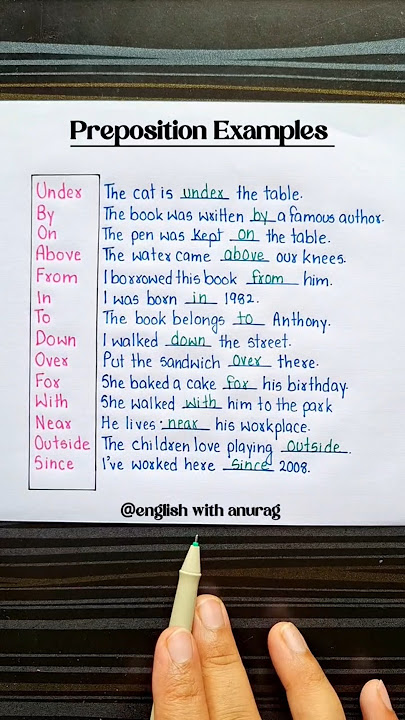 Preposition Examples
Under The cat is under the table.
By The book was written by a famous author.
On The pen was kept on the table.
Above The water came above our knees.
From I borrowed this book from him.
In I was born in 1982.
To The book belongs to Anthony.
Down I walked down the street.
Over Put the sandwich over there.
For She baked a cake for his birthday.
With She walked with him to the park
Near He lives near his workplace.
Outside The children love playing outside.
Since I've worked here since 2008.
@english with anurag